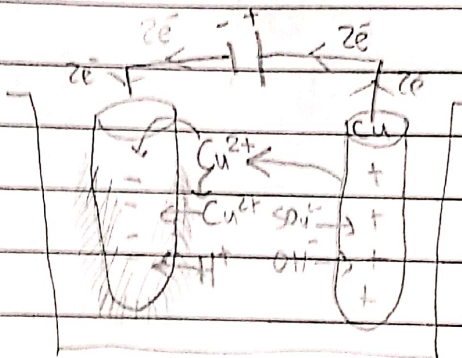 - +
2e⁻ 2e⁻
2e⁻ 2e⁻
Cu
Cu²⁺ +
-
- Cu²⁺ SO₄²⁻ +
-
H⁺ OH⁻ +
+